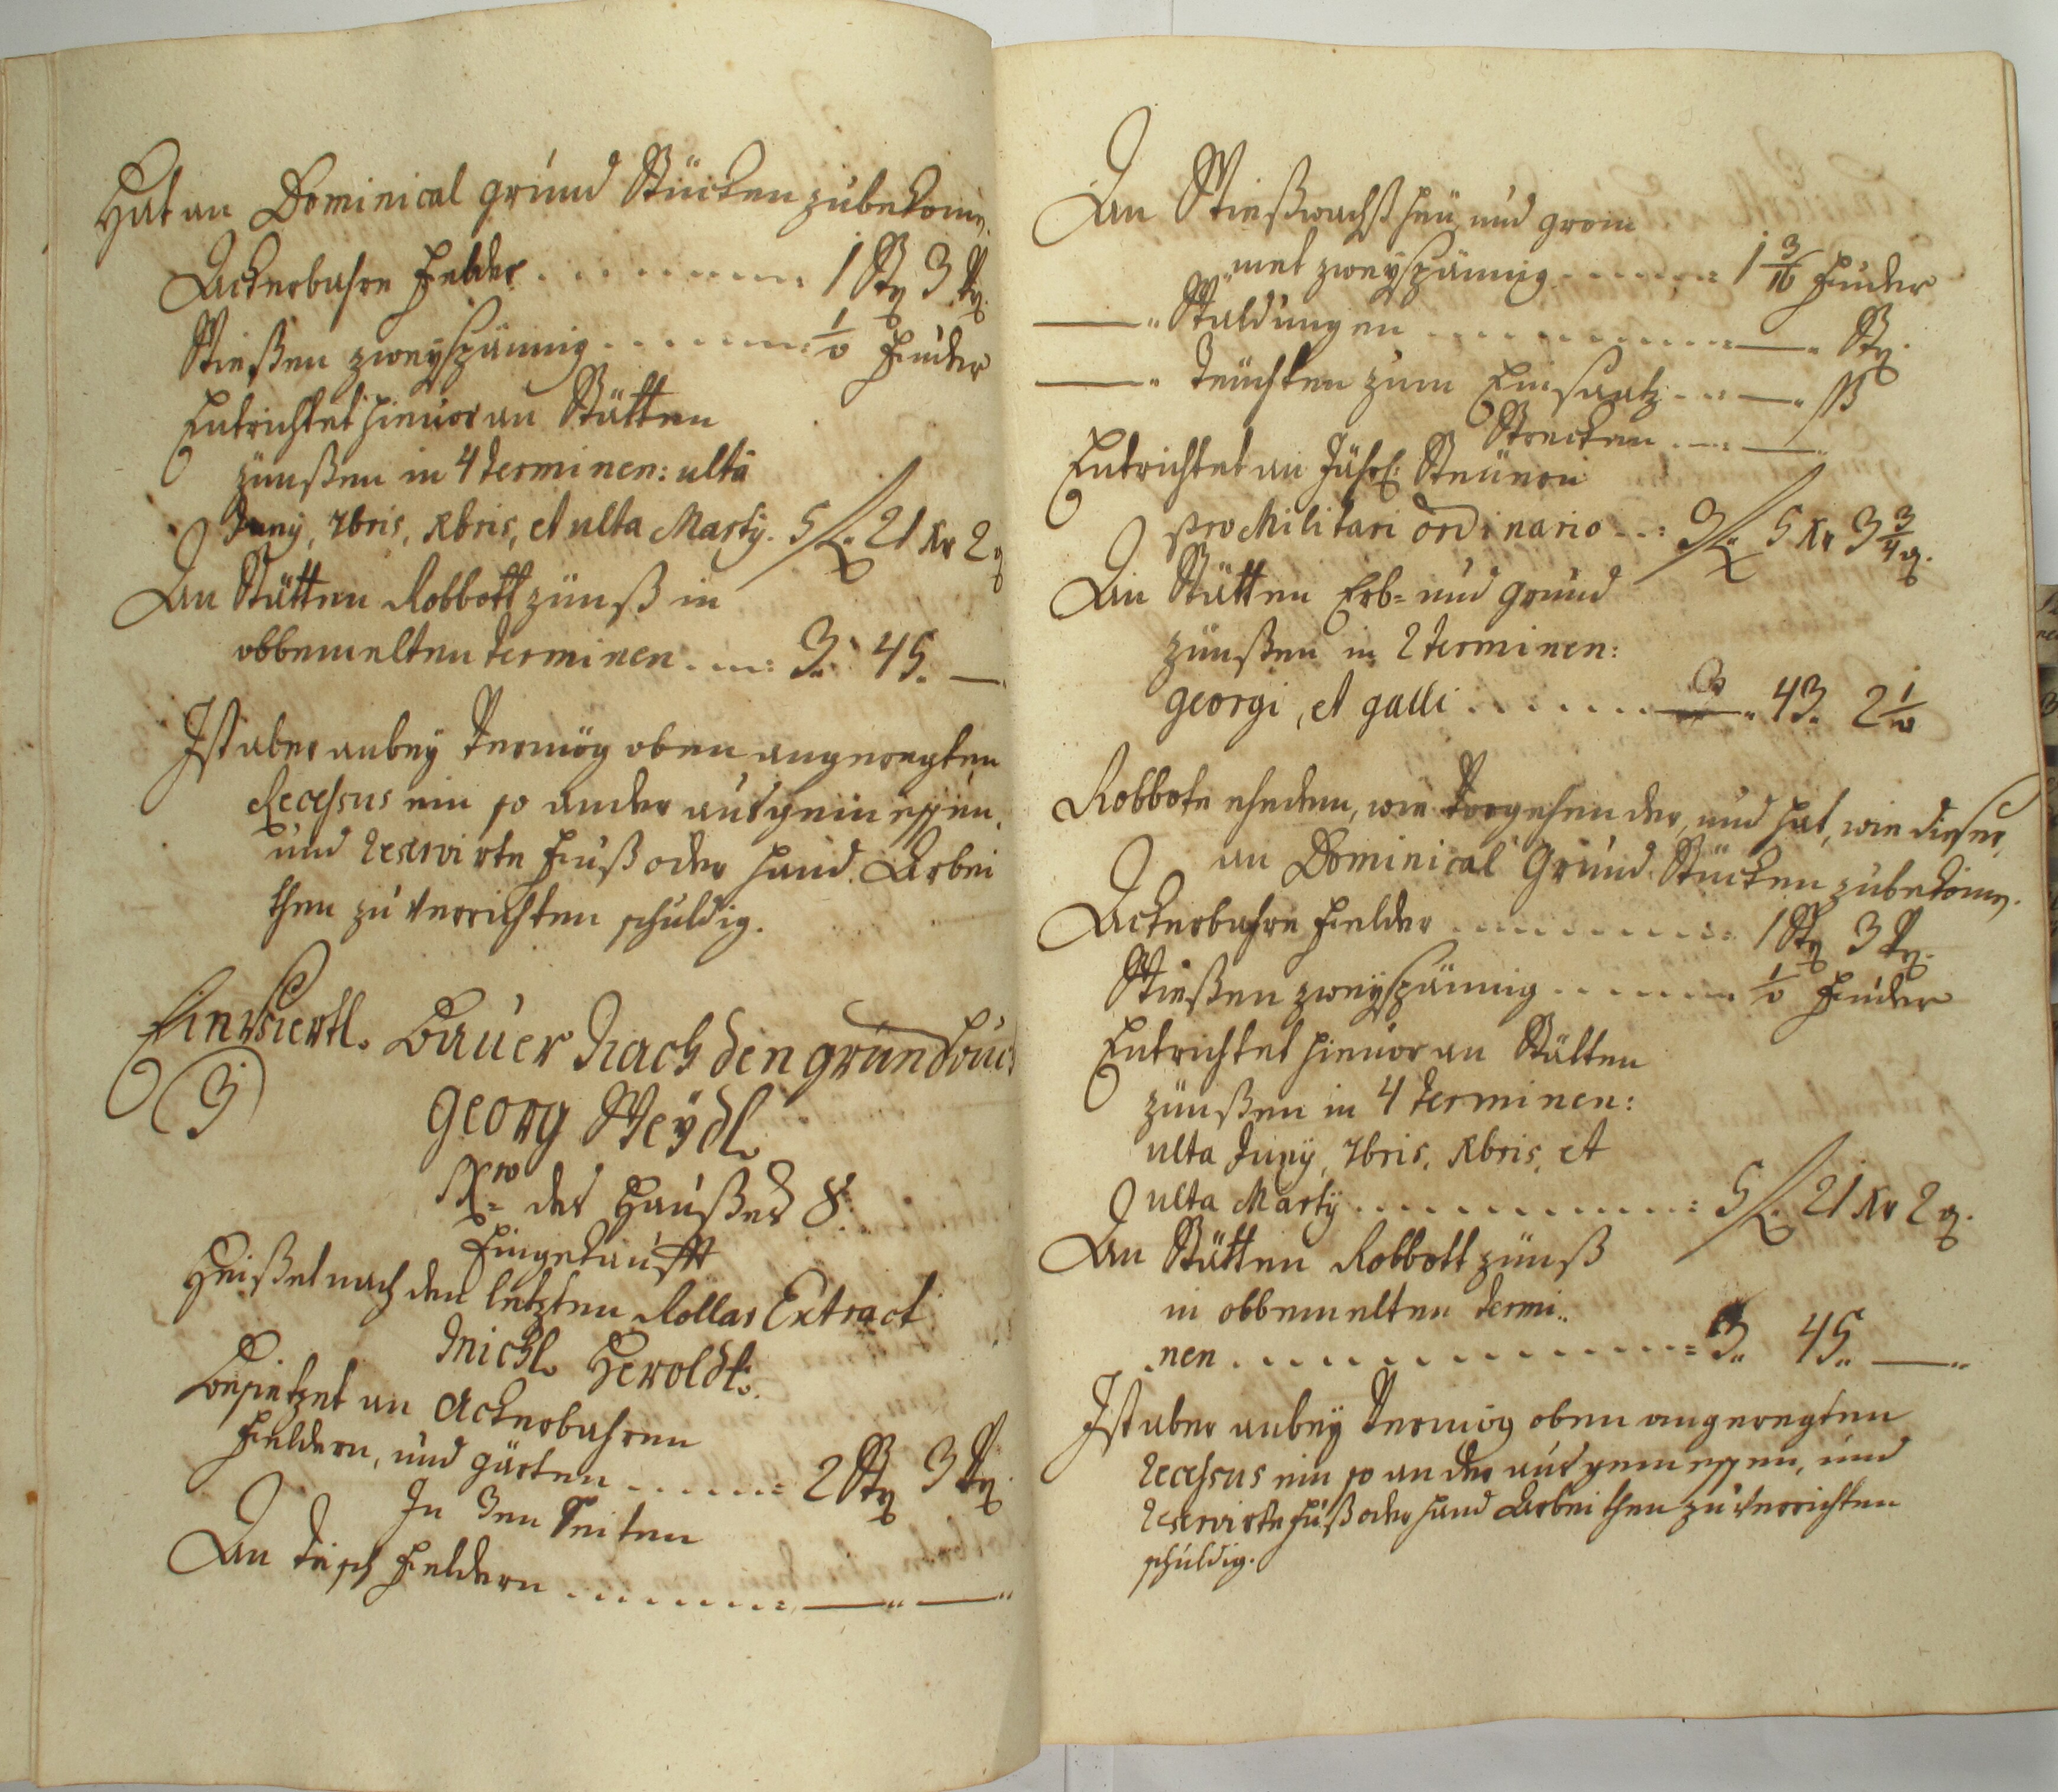 Hat an Dominical grund Stücken zubekom̅.
Ackerbahre Felder . . . . . . . . 1 Stz 3 Vtz.
Wießen zweyspännig . . . . . . . ½ Fuder
Entrichtet hievor an Stätten
zünßen in 4 terminen: ulta
Juny, 7bris, Xbris, et ulta Marty. 5 fl. 21 Kr 2 ₰
An Stätten Robbott zünß in
obbemelten terminen . . . : 3. 45. —
Ist aber anbey Vermög oben angeregten
Recessus ein so ander ausgemeßen,
und reservirte Fuß oder Hand Arbei
then zu verrichten schuldig.
Ein Viertl. Bauer Nach den grundbuch
3
Georg Weÿdl.
Nro des Haußes 8.
Eingekaufft
Heißet nach den letzten Rollar Extract
Michl. Heroldt.
Besietzet an Ackerbahren
Feldern, und gärten . . . . . = 2 Stz 3 Vtz.
In 3en Seiten
An Teisch Feldern . . . . . . . . — " — "
An Wießwachß heu, und grom
met zweyspännig . . . . . = 1 3/16 Fuder
— " Waldungen . . . . . . . . . — " Stz.
— " Teüchten zum Einsaatz . . . — " ß
Strecken . . . — "
Entrichtet an Jährl: Steüern
pro Militari ordinario . . : 9 fl. 5 Kr 3 ¾ ₰.
An Stätten Erb= und grund
zünßen in 2 terminen:
georgi, et galli . . . . . . . — " 43. 2 ½
Robbothe ehedem, wie Vorgehender, und hat, wie dieser,
an Dominical Grund Stücken zubekom̅.
Ackerbahre Felder . . . . . . . . . = 1 Stz 3 Vtz.
Wießen zweyspännig . . . . . . . ½ Fuder
Entrichtet hievor an Stätten
zünßen in 4 terminen:
ulta Juny, 7bris, Xbris, et
ulta Marty . . . . . . . . . . . . : 5 fl. 21 Kr 2 ₰.
An Stätten Robbott zünß
in obbemelten termi..
nen . . . . . . . . . . . . . . . = 3. 45. — "
Ist aber anbey Vermög oben angeregten
recessus ein so ander ausgemeßen, und
reservirte Fuß oder Hand Arbeithen zu verrichten
schuldig.